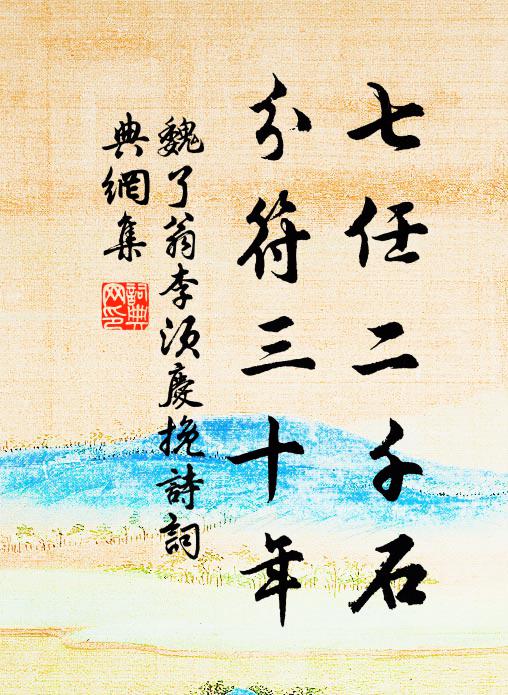 七任二千石
分符三十年
魏了翁李須慶挽詩詞
典網集
詞典
网印